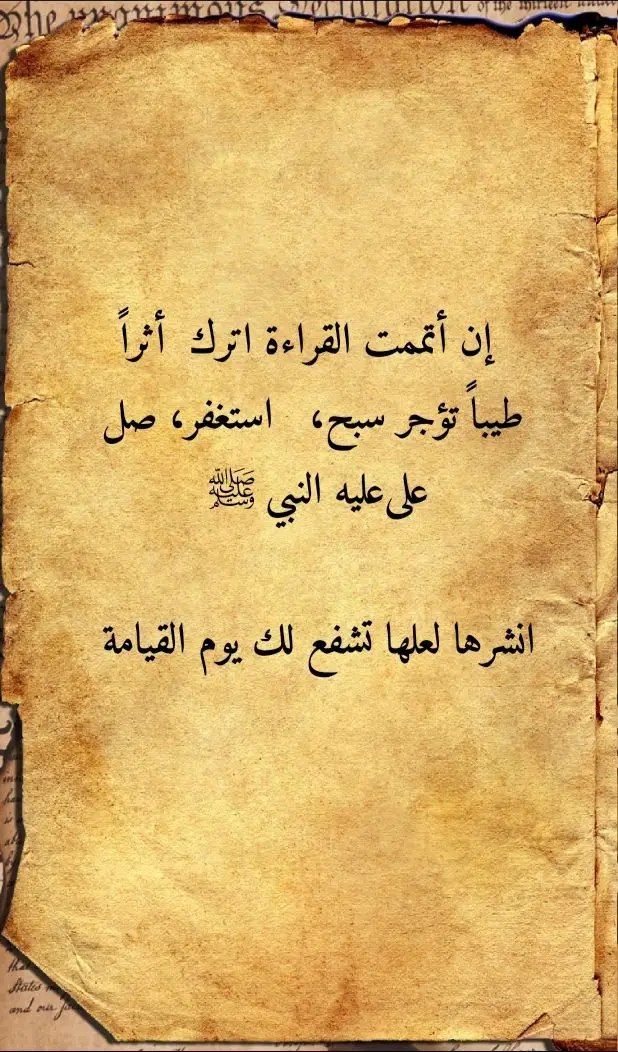 The unanimous Declaration of the thirteen united
إن أتممت القراءة اترك أثراً
طيباً تؤجر سبح، استغفر، صل
على عليه النبي ﷺ
انشرها لعلها تشفع لك يوم القيامة
that
States
and our